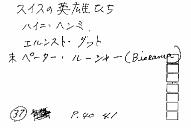 スイスの英雄ひろ
ハイニ・ヘンミ
エルンスト・グット
※ペーター・ルーシャー(Biorama)
37 P.40 41